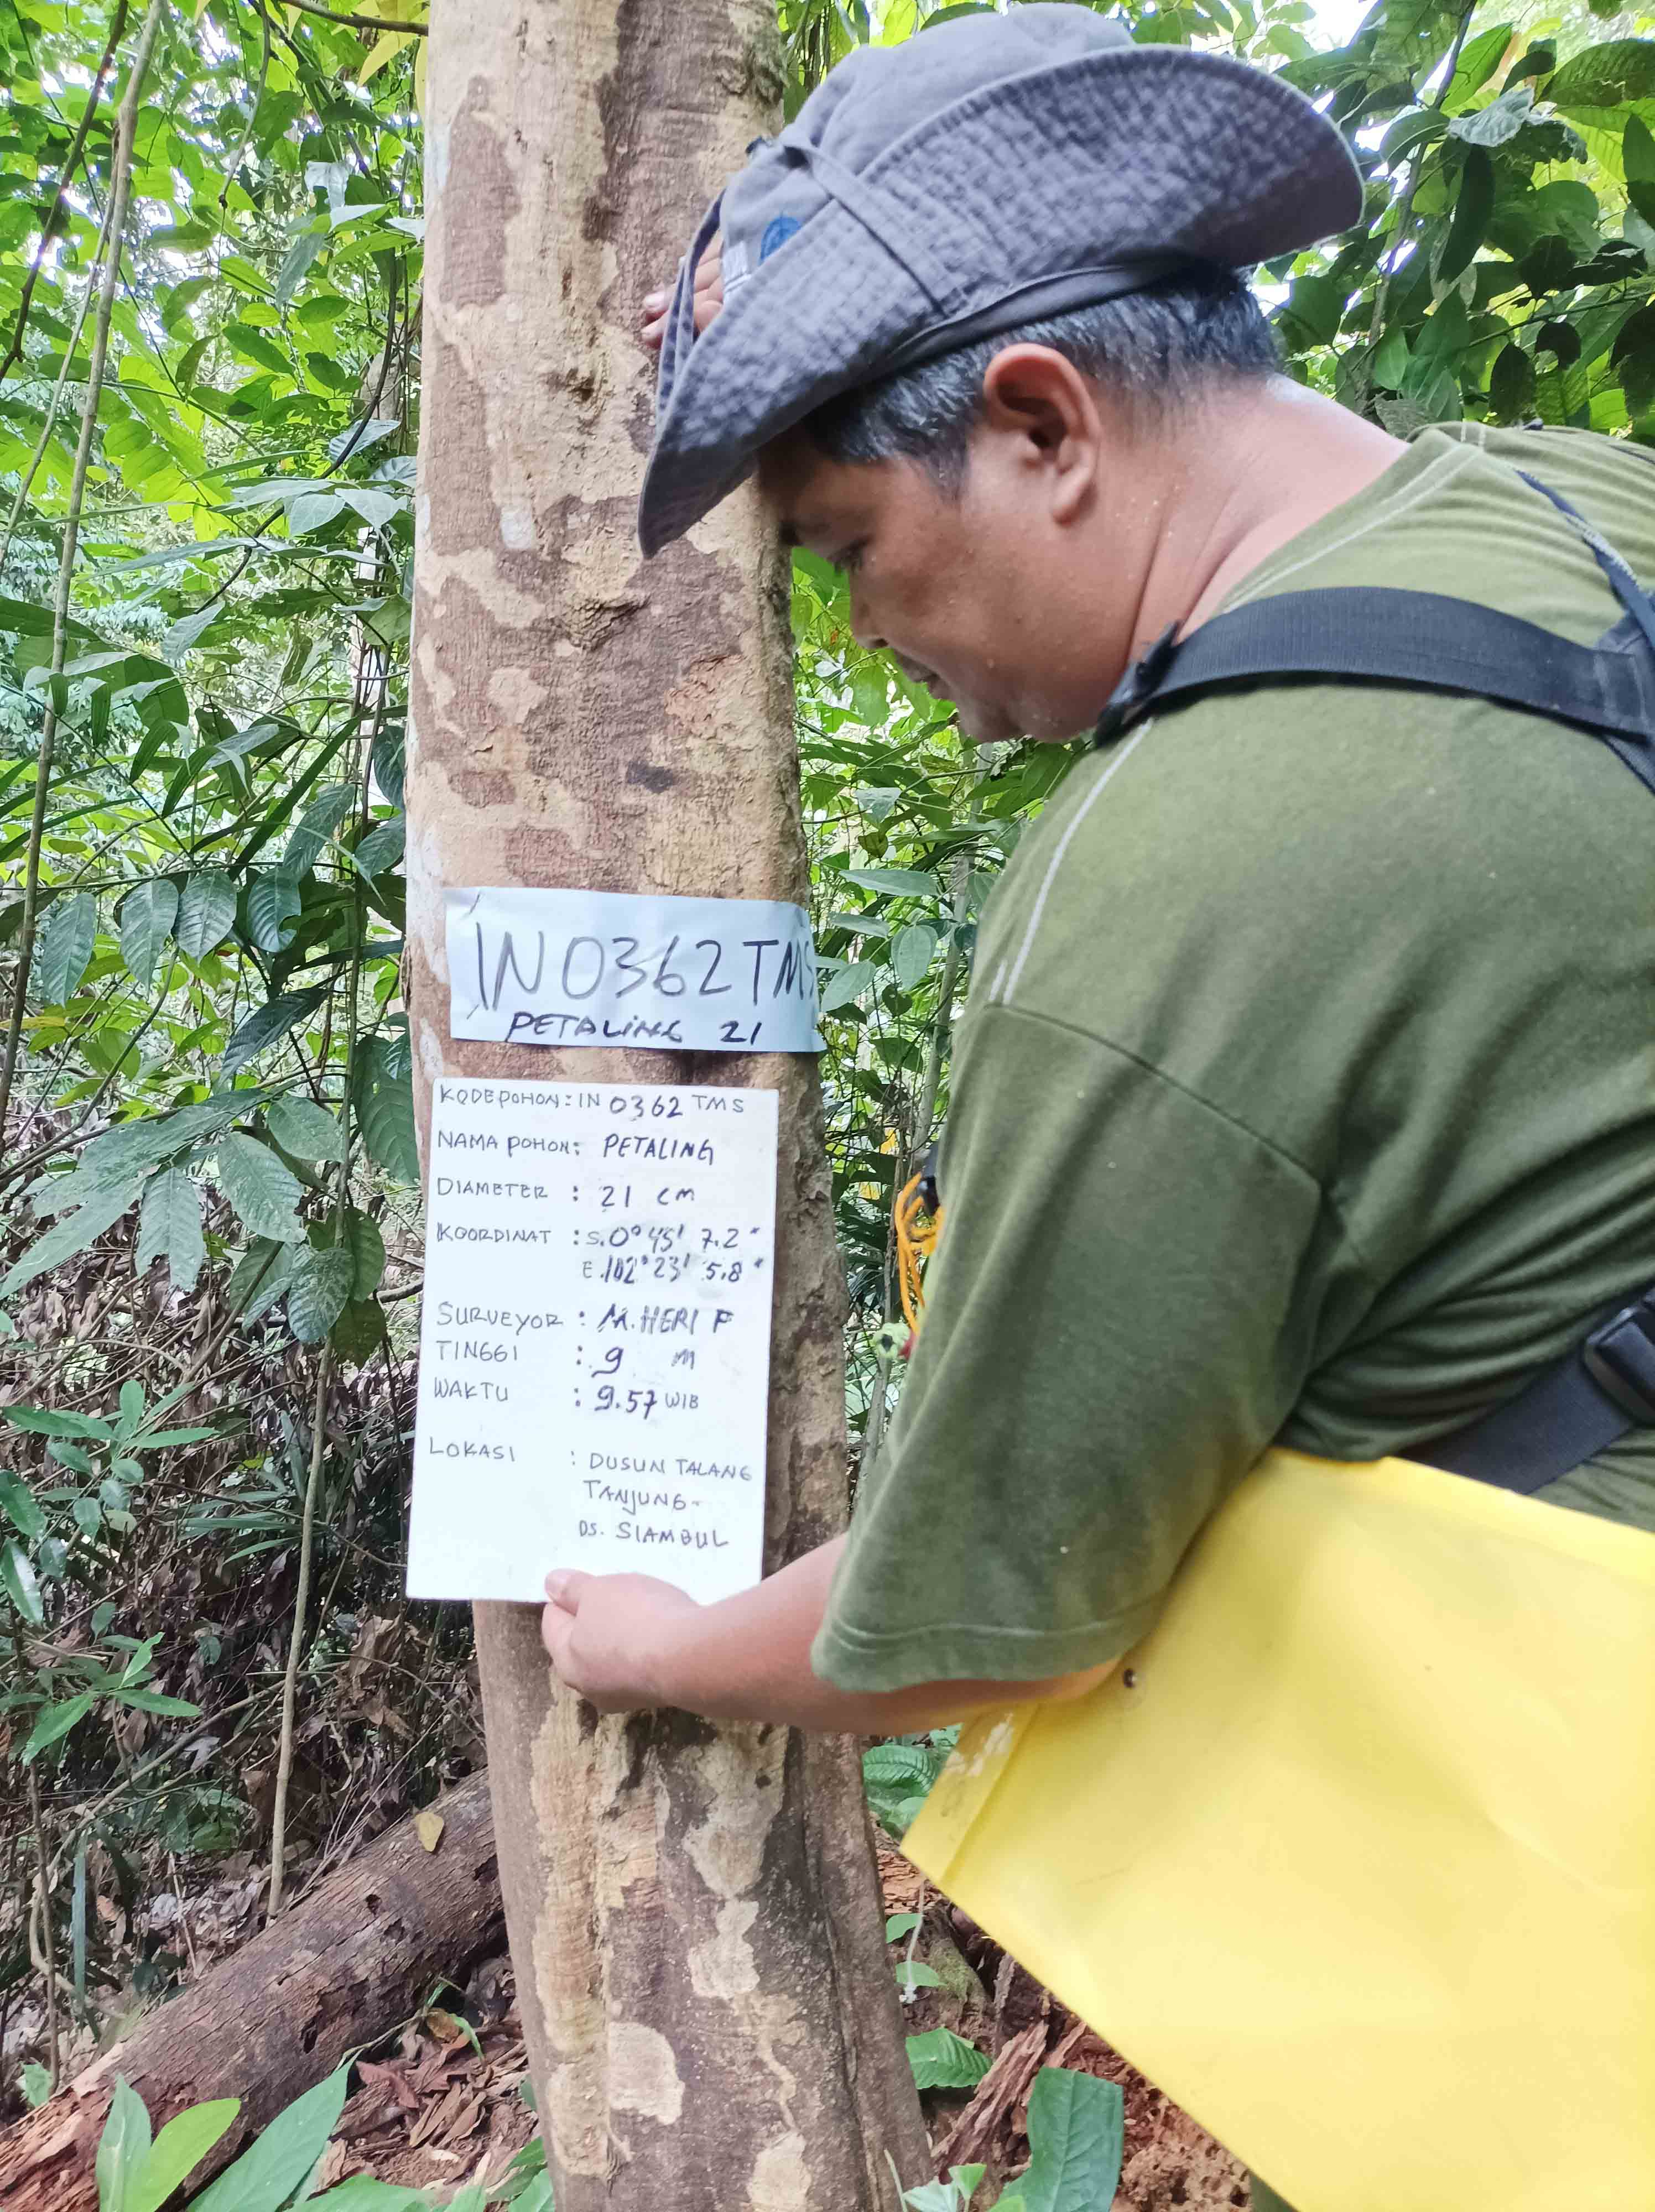 IN 0362 TMS
PETALING 21
KODE POHON : IN 0362 TMS
NAMA POHON : PETALING
DIAMETER : 21 CM
KOORDINAT : S.0° 45' 7.2"
E.102° 23' 5.8"
SURVEYOR : M. HERI F
TINGGI : 9 M
WAKTU : 9.57 WIB
LOKASI : DUSUN TALANG
TANJUNG-
DS. SIAMBUL